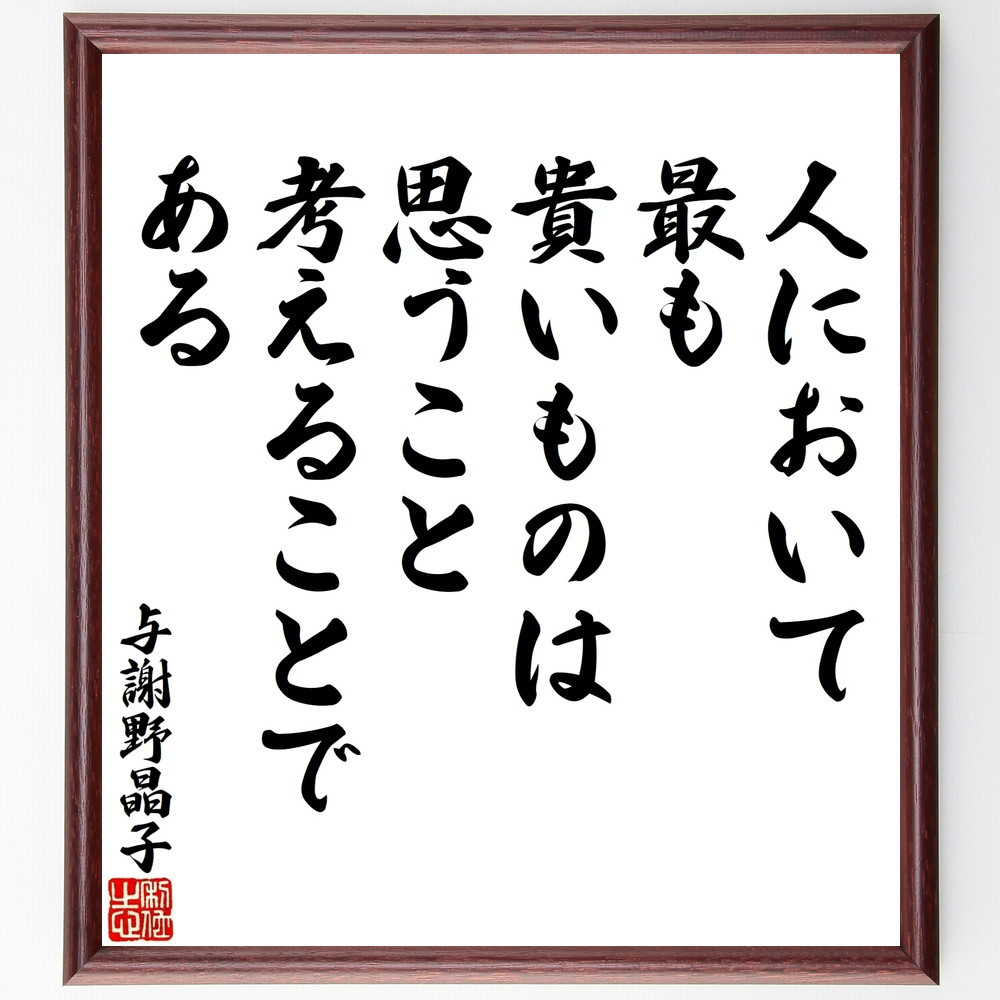 人において
最も
貴いものは
思うこと
考えることで
ある
与謝野晶子